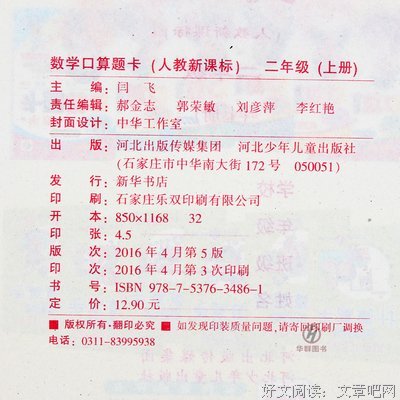 数学口算题卡（人教新课标） 二年级（上册）
主 编：闫 飞
责任编辑：郝金志 郭荣敏 刘彦萍 李红艳
封面设计：中华工作室
出 版：河北出版传媒集团 河北少年儿童出版社
（石家庄市中华南大街172号 050051）
发 行：新华书店
印 刷：石家庄乐双印刷有限公司
开 本：850×1168 32
印 张：4.5
版 次：2016年4月第5版
印 次：2016年4月第3次印刷
书 号：ISBN 978-7-5376-3486-1
定 价：12.90元
■版权所有·翻印必究 ■如发现印装质量问题，请寄回印刷厂调换
电话：0311-83995938
华群图书
好文阅读：文章吧网